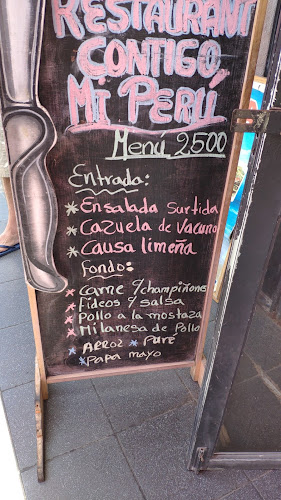 RESTAURANT
CONTIGO,
Mi PERÚ
Menú 2.500
Entrada:
* Ensalada Surtida
* Cazuela de Vacuno
* Causa limeña
fondo:
* Carne y champiñones
* Fideos y salsa
* Pollo a la mostaza
* Milanesa de Pollo
* ARROZ * PURÉ
* papa mayo